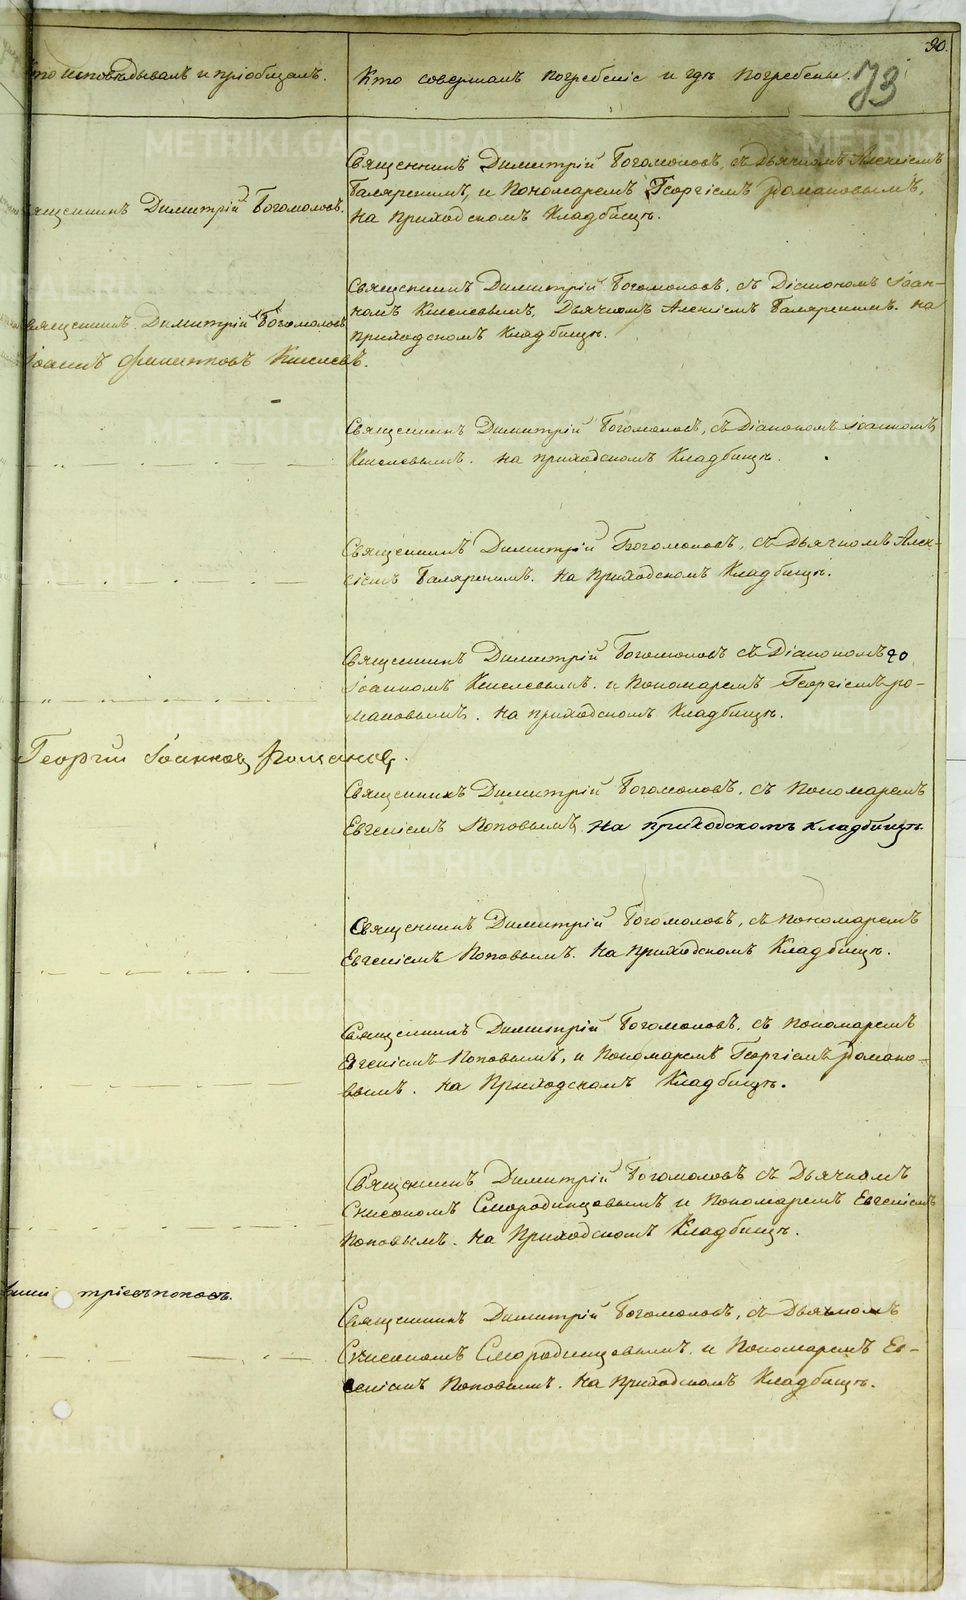 90.
73
Кто исповѣдывалъ и пріобщалъ.
Кто совершалъ погребеніе и гдѣ погребены.
Священникъ Димитрій Богомоловъ, съ Дьячкомъ Алексіемъ
Священникъ Димитрій Богомоловъ.
и Пономаремъ Георгіемъ Романовымъ,
на Приходскомъ Кладбищѣ.
Священникъ Димитрій Богомоловъ, съ Діакономъ Іоан-
номъ Киселевымъ, Дьячкомъ Алексіемъ на
Священникъ Димитрій Богомоловъ
приходскомъ Кладбищѣ.
Іоаннъ Филиповъ Киселевъ.
Священникъ Димитрій Богомоловъ, съ Діакономъ Іоанномъ
Киселевымъ. на приходскомъ Кладбищѣ.
Священникъ Димитрій Богомоловъ, съ Дьячкомъ Алек-
сіемъ на Приходскомъ Кладбищѣ.
Священникъ Димитрій Богомоловъ съ Діакономъ
Іоанномъ Киселевымъ. и Пономаремъ Георгіемъ Ро-
мановымъ. на приходскомъ Кладбищѣ.
Георгій Іоанновъ Романовъ.
Священникъ Димитрій Богомоловъ, съ Пономаремъ
Евгеніемъ Поповымъ на приходскомъ кладбищѣ.
Священникъ Димитрій Богомоловъ, съ пономаремъ
Евгеніемъ Поповымъ. на Приходскомъ Кладбищѣ.
Священникъ Димитрій Богомоловъ, съ пономаремъ
Евгеніемъ Поповымъ, и Пономаремъ Георгіемъ Романо-
вымъ. на Приходскомъ Кладбищѣ.
Священникъ Димитрій Богомоловъ съ Дьячкомъ
Смородинцовымъ и Пономаремъ Евгеніемъ
Поповымъ. на Приходскомъ Кладбищѣ.
трієвъ поповъ.
Священникъ Димитрій Богомоловъ, съ Дьячкомъ
Смородинцовымъ. и Пономаремъ Ев-
геніемъ Поповымъ. на Приходскомъ Кладбищѣ.
METRIKI.GASO-URAL.RU